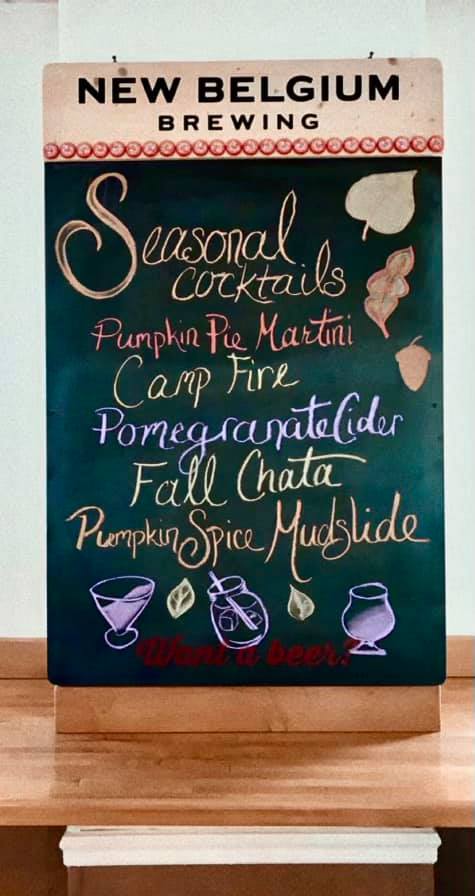 NEW BELGIUM
BREWING
Seasonal
cocktails
Pumpkin Pie Martini
Camp Fire
Pomegranate Cider
Fall Chata
Pumpkin Spice Mudslide
Want a beer?